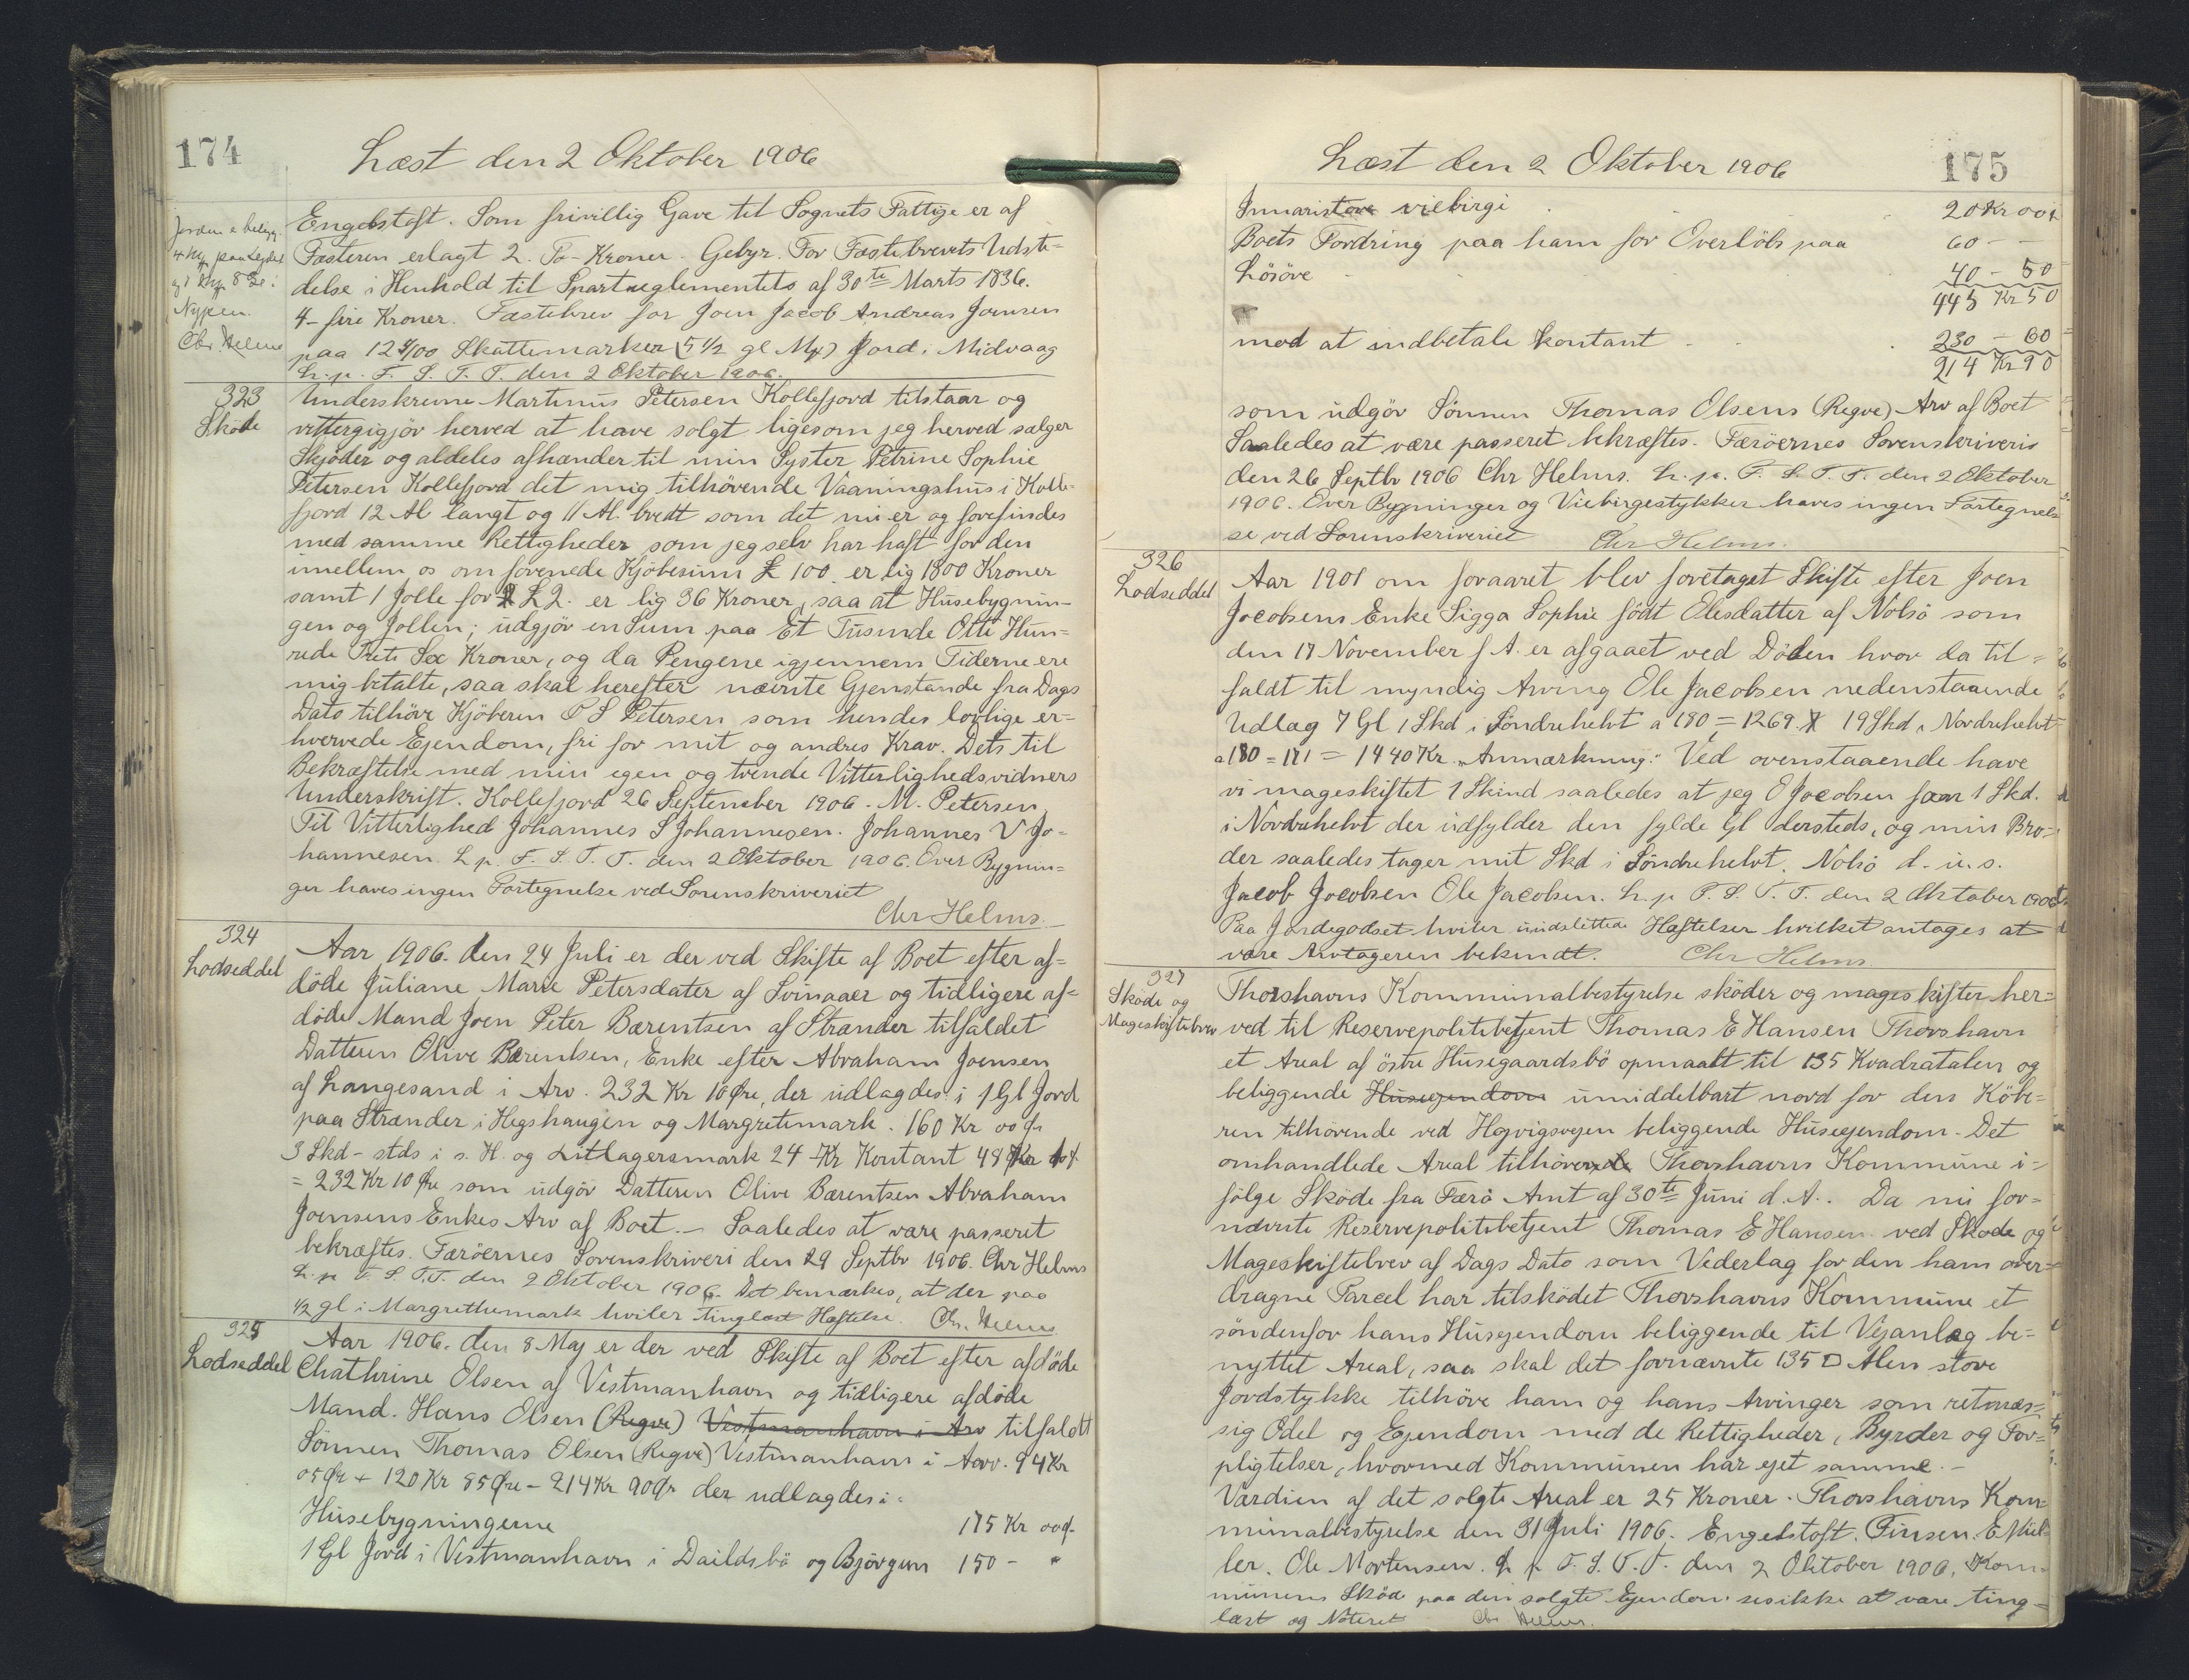 174
Læst den 2 Oktober 1906
Jorden e belig.
4 Mg paa
Nypen.
Chr. Helms
Engelstoft. Som frivillig Gave til Sognets Fattige er af
Fæsteren erlagt 2. To-Kroner. Gebyr. For Fæstebrevets Udste-
delse i Henhold til Sportreglementets af 30te Marts 1836.
4- fire Kroner. Fæstebrev for Joen Jacob Andreas Joensen
paa Skattemarker (5 1/2 gl Mg) Jord i Midvaag
L. p. F. S. T. T. den 2 Oktober 1906.
323
Sköde
Underskrevne Martinus Petersen Kollefjord tilstaar og
vittergigjör herved at have solgt ligesom jeg herved sælger
Skjöder og aldeles afhænder til min Syster Petrine Sophie
Petersen Kollefjord det mig tilhörende Vaaningshus i Kolle-
fjord 12 Al langt og 11 Al. bredt som det nu er og forefindes
med samme Rettigheder som jeg selv har haft for den
imellem os om forenede Kjöbesum £ 100 er lig 1800 Kroner
samt 1 Jolle for £ 2. er lig 36 Kroner, saa at Husebygnin-
gen og Jollen; udgjör en Sum paa Et Tusinde Otte Hun-
rede Treti Sex Kroner, og da Pengene igjennem Tiderne ere
mig betalte, saa skal herefter nævnte Gjenstande fra Dags
Dato tilhöre Kjöberen P S Petersen som hendes lovlige er-
hvervede Ejendom, fri for mit og andres Krav. Dets til
Bekræftelse med min egen og tvende Vitterlighedsvidners
Underskrift. Kollefjord 26 September 1906. M. Petersen
Til Vitterlighed Johannes S Johannesen. Johannes V Jo-
hannesen. L p. F. S. T. T. den 2 Oktober 1906. Over Bygnin-
ger haves ingen Fortegnelse ved Sorenskriveriet
Chr Helms.
324
Lodseddel
Aar 1906. den 24 Juli er der ved Skifte af Boet efter af-
döde Juliane Marie Petersdater af Svinaaer og tidligere af-
döde Mand Joen Peter Bærentsen af Strænder tilfaldet
Datteren Olive Bærentsen, Enke efter Abraham Joensen
af Langesand i Arv. 232 Kr 10 Øre, der udlagdes i 1 Gl Jord
paa Strænder i Hegshaugen og Margretemark. 160 Kr 00 Ø
3 Skd - stds i s. H. og Litlagersmark 24 - Kr Kontant 48
= 232 Kr 10 Øre som udgör Datteren Olive Bærentsen Abraham
Joensens Enkes Arv af Boet. - Saaledes at være passeret
bekræftes. Færöernes Sorenskriveri den 29 Septbr 1906. Chr Helms
L. p. F. S. T. T. den 2 Oktober 1906. Det bemærkes, at der paa
1/2 gl i Margrethemark hviler tinglæst Hæftelse. Chr. Helms
325
Lodseddel
Aar 1906. den 8 Maj er der ved Skifte af Boet efter afdöde
Chathrine Olsen af Vestmanhavn og tidligere afdöde
Mand. Hans Olsen (Regve) Vestmanhavn i Arv tilfaldt
Sönnen Thomas Olsen (Regve) Vestmanhavn i Aarv. 94 Kr
05 Øre + 120 Kr 85 Øre - 214 Kr 90 Ør der udlagdes i:
Husebygningerne 175 Kr 00 Ø.
1 Gl Jord i Vestmanhavn i Daildsbö og Björgum 150 - "
175
Læst den 2 Oktober 1906
Innaristove viebirgi 20 Kr 00 Ø
Boets Fordring paa ham for Overlöb paa 60 - -
Lösöre 40 - 50
445 Kr 50
mod at indbetale kontant 230 - 60
214 Kr 90
som udgör Sönnen Thomas Olsens (Regve) Arv af Boet
Saaledes at være passeret bekræftes. Færöernes Sorenskriveri
den 26 Septbr 1906 Chr Helms. L. p. F. S. T. T. den 2 Oktober
1906. Over Bygninger og Viebirgestykker haves ingen Fortegnel-
se ved Sorenskriveriet Chr Helms.
326
Lodseddel
Aar 1901 om foraaret blev foretaget Skifte efter Joen
Jacobsens Enke Sigga Sophie födt Olesdatter af Nolsö som
den 17 November f A. er afgaaet ved Döden hvor da til-
faldt til myndig Arving Ole Jacobsen nedenstaaende
Udlag 7 Gl 1 Skd i Söndrehelvt a 180 = 1269. 19 Skd i Nordrehelvt
a 180 = 171 = 1440 Kr. "Anmærkning:" Ved ovenstaaende have
vi mageskiftet 1 Skind saaledes at jeg O Jacobsen faar 1 Skd.
i Nordrehelvt der udfylder den fylde Gl dersteds, og min Bro-
der saaledes tager mit Skd i Söndrehelvt. Nolsö d. u. s.
Jacob Jacobsen Ole Jacobsen. L. p F. S. T. T. den 2 Oktober 1906
Paa Jordegodset hviler uudslettede Hæftelser hvilket antages at
være Arvtageren bekendt. Chr Helms.
327
Sköde og
Mageskiftebrev
Thorshavns Kommunalbestyrelse sköder og mageskifter her-
ved til Reservepolitibetjent Thomas E Hansen Thorshavn
et Areal af östre Husegaardsbö opmaalt til 135 Kvadratalen og
beliggende Huseejendom umiddelbart nord for den Köbe-
ren tilhörende ved Hojvigsvejen beliggende Huseejendom. Det
omhandlede Areal tilhörende Thorshavns Kommune i-
fölge Sköde fra Færö Amt af 30te Juni d. A.. Da nu for-
nævnte Reservepolitibetjent Thomas E Hansen ved Sköde og
Mageskiftebrev af Dags Dato som Vederlag for den ham over-
dragne Parcel har tilsködet Thorshavns Kommune et
söndenfor hans Husejendom beliggende til Vejanlæg be-
nyttet Areal, saa skal det fornævnte 135 □ Alen store
Jordstykke tilhöre ham og hans Arvinger som retmæs-
sig Odel og Ejendom med de Rettigheder, Byrder og For-
pligtelser, hvormed Kommunen har ejet samme. -
Værdien af det solgte Areal er 25 Kroner. Thorshavns Kom-
munalbestyrelse den 31 Juli 1906. Engelstoft. Finsen. E Mül-
ler. Ole Mortensen. L p F. S. T. T. den 2 Oktober 1906. Kom-
munens Sköde paa den solgte Ejendom ses ikke at være ting-
læst og Noteret Chr Helms.